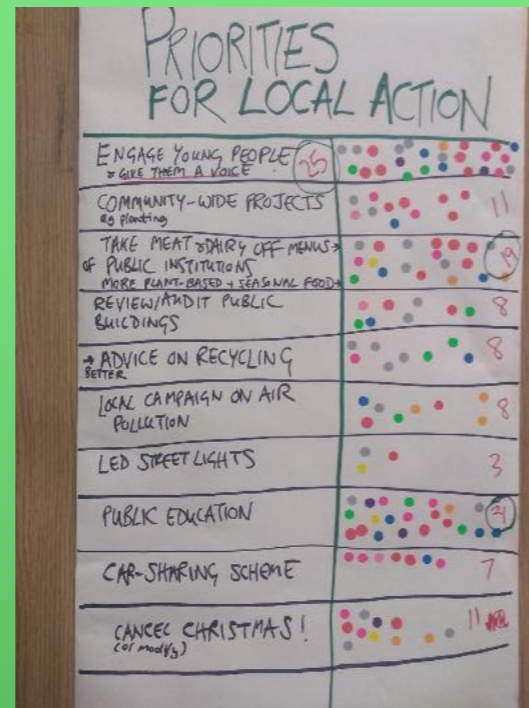 PRIORITIES
FOR LOCAL ACTION
ENGAGE YOUNG PEOPLE 25
GIVE THEM A VOICE
COMMUNITY-WIDE PROJECTS 11
eg planting
TAKE MEAT & DAIRY OFF MENUS 19
OF PUBLIC INSTITUTIONS
MORE PLANT-BASED + SEASONAL FOOD
REVIEW/AUDIT PUBLIC 8
BUILDINGS
→ ADVICE ON RECYCLING 8
BETTER
LOCAL CAMPAIGN ON AIR 8
POLLUTION
LED STREET LIGHTS 3
PUBLIC EDUCATION
CAR-SHARING SCHEME 7
CANCEL CHRISTMAS! 11
(or modify)